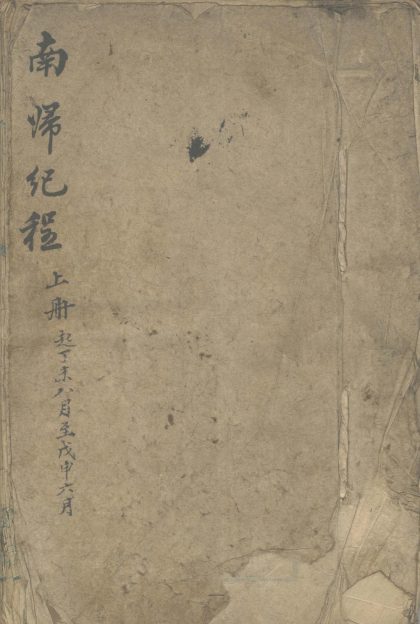 南歸紀程 上册 起丁未八月至戊申六月